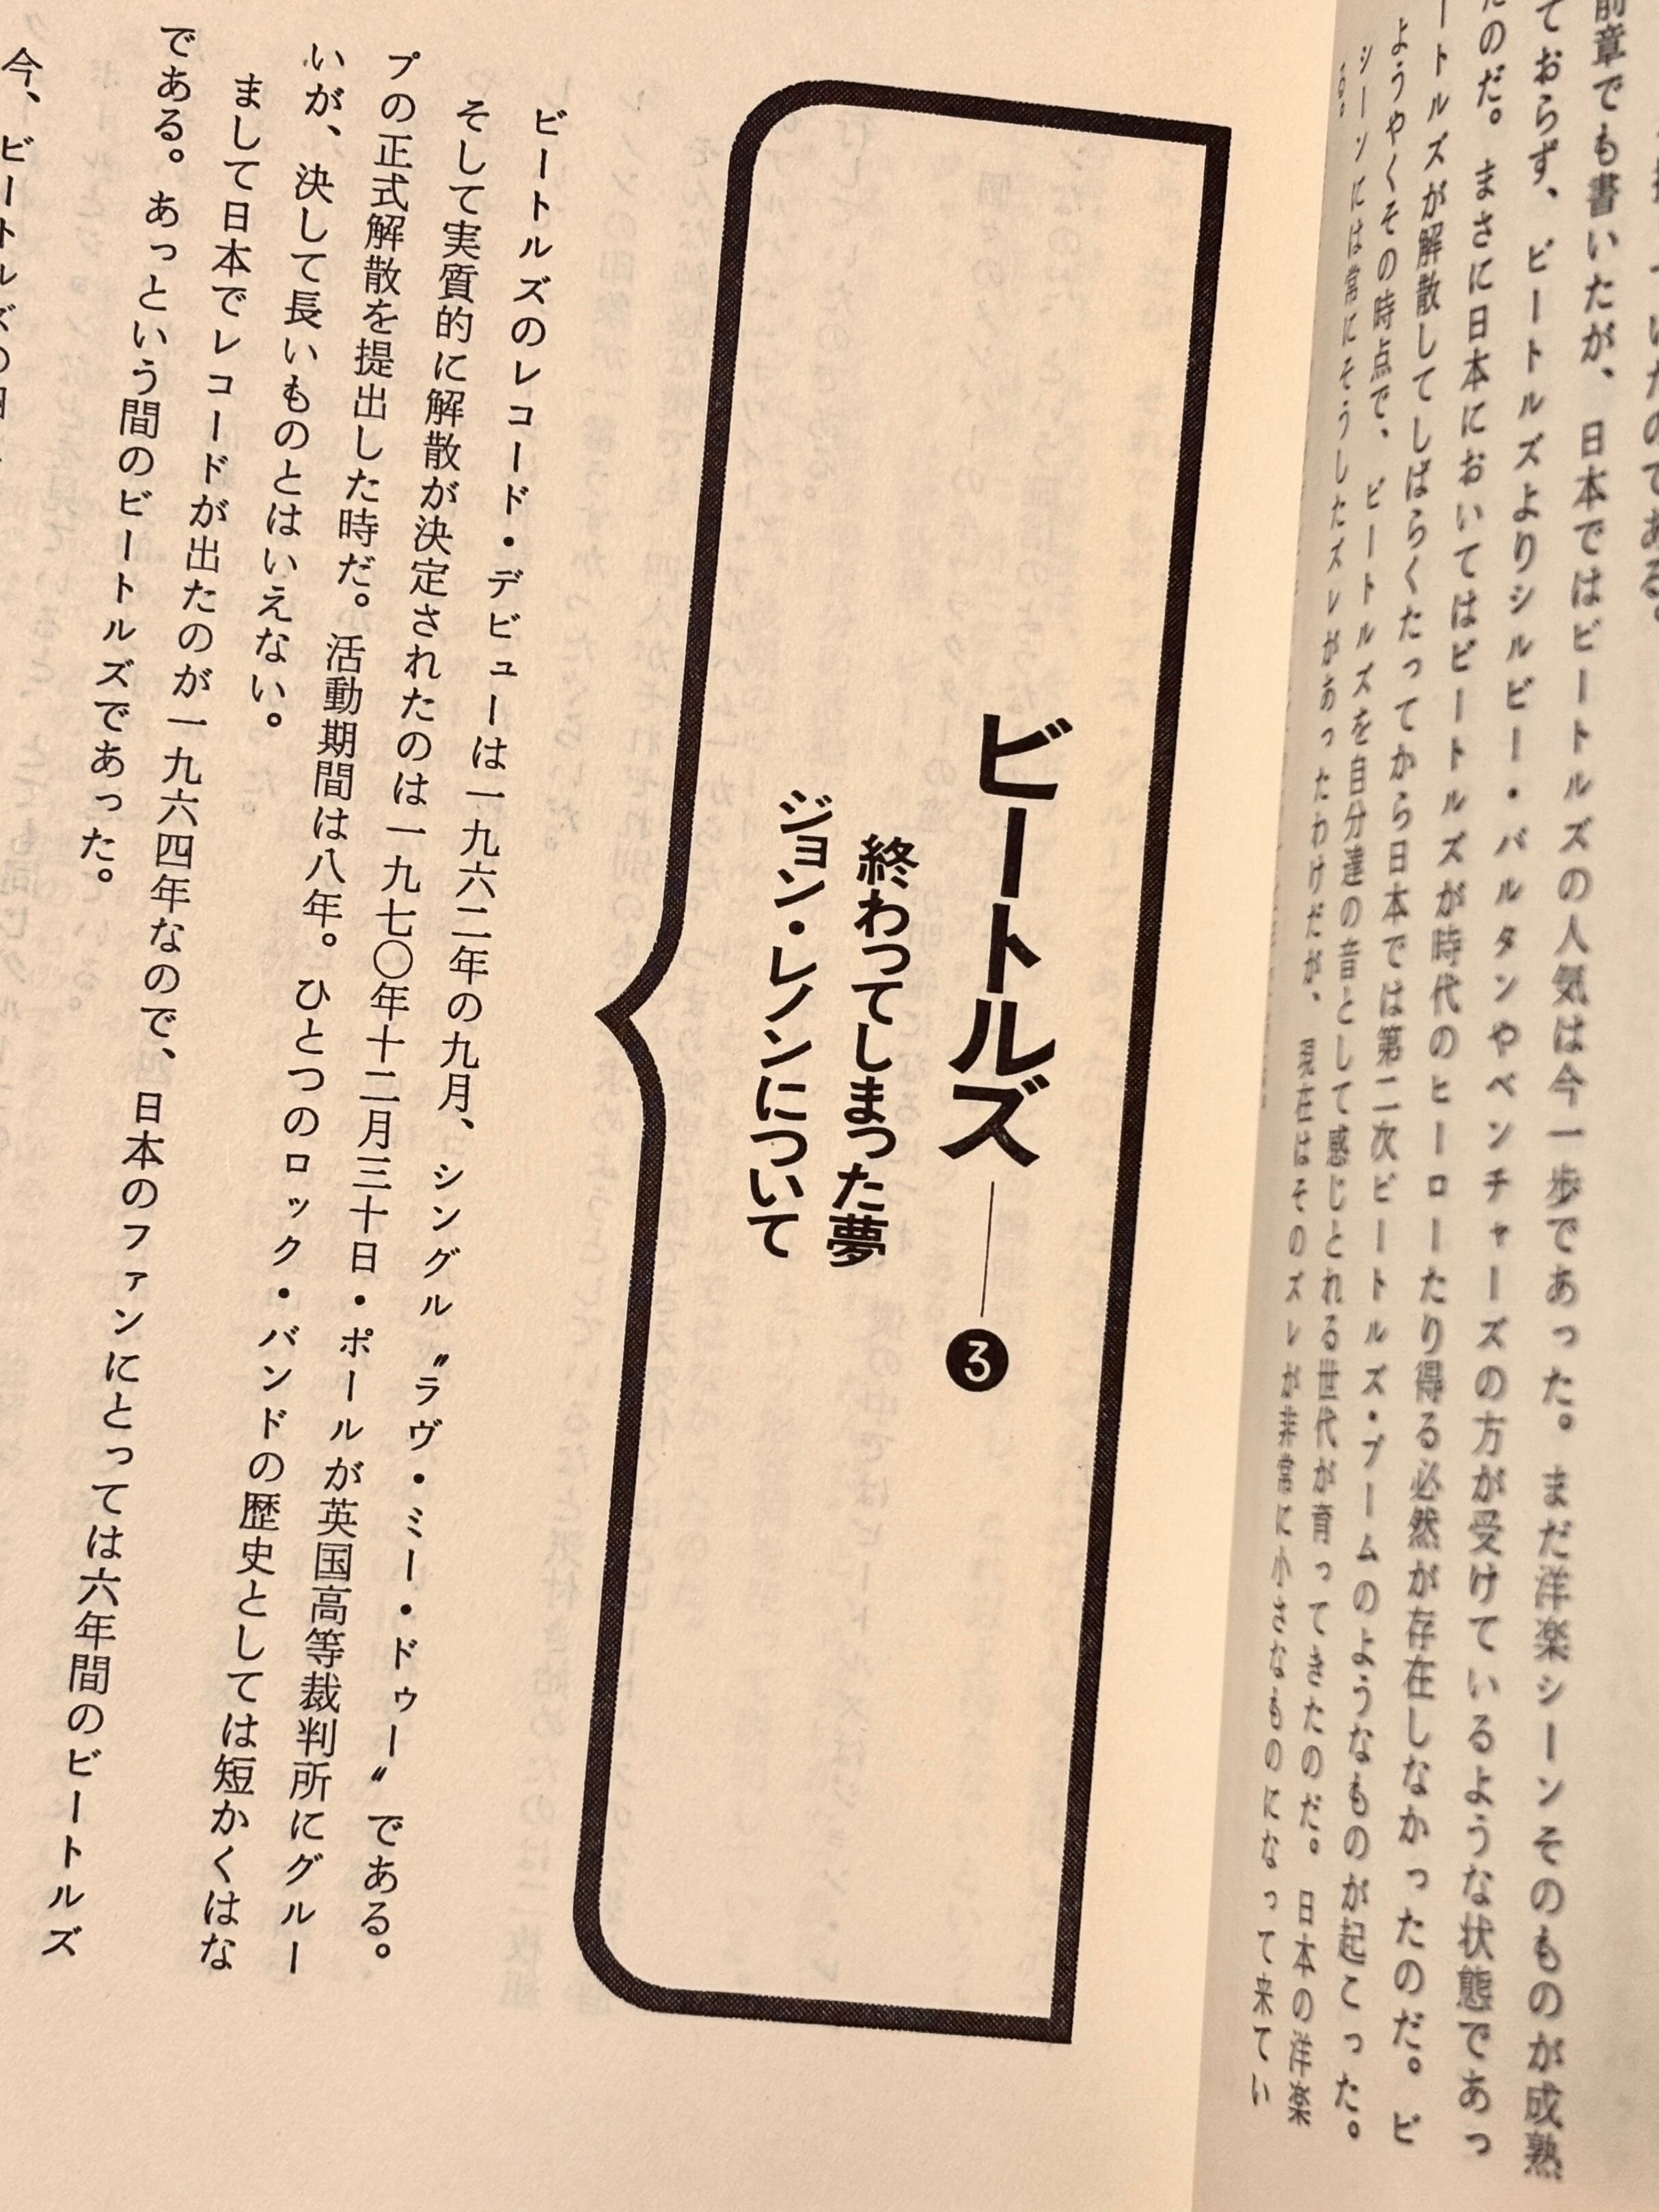 前章でも書いたが、日本ではビートルズの人気は今一歩であった。まだ洋楽シーンそのものが成熟
ておらず、ビートルズよりシルビー・バルタンやベンチャーズの方が受けているような状態であっ
たのだ。まさに日本においてはビートルズが時代のヒーローたり得る必然が存在しなかったのだ。ビ
ートルズが解散してしばらくたってから日本では第二次ビートルズ・ブームのようなものが起こった。
ようやくその時点で、ビートルズを自分達の音として感じとれる世代が育ってきたのだ。日本の洋楽
シーンには常にそうしたズレがあったわけだが、現在はそのズレが非常に小さなものになって来てい
る。
ビートルズ──❸
終わってしまった夢
ジョン・レノンについて
ビートルズのレコード・デビューは一九六二年の九月、シングル〝ラヴ・ミー・ドゥー〟である。
そして実質的に解散が決定されたのは一九七〇年十二月三十日・ポールが英国高等裁判所にグルー
プの正式解散を提出した時だ。活動期間は八年。ひとつのロック・バンドの歴史としては短かくはな
いが、決して長いものとはいえない。
まして日本でレコードが出たのが一九六四年なので、日本のファンにとっては六年間のビートルズ
である。あっという間のビートルズであった。
今、ビートルズの